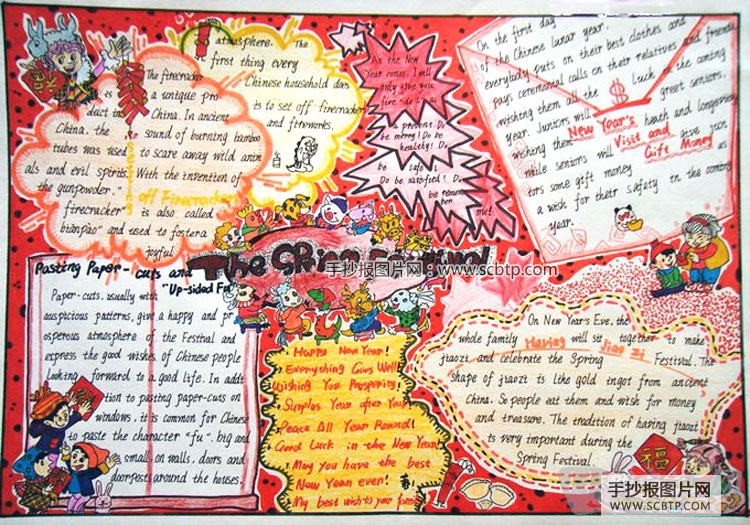 The firecracker
is a unique pro-
duct in China. In ancient
China, the sound of burning bamboo
tubes was used to scare away wild anim
als and evil spirits. With the invention of
the gunpowder."
Setting off Firecrackers
firecracker" is also called
bianpao" and used to foster a
joyful
atmosphere. The
first thing every
Chinese household does
is to set off firecracker
and fireworks.
As the New
Year comes, I will
only give you
five
be present! Do
be merry! Do be
healthy! Do
be safe
Do be satisfied! Do
be remember
me!
On the first day
of the Chinese lunar year,
everybody puts on their best clothes and
pays ceremonial calls on their relatives and friends
wishing them all the luck in the coming
year. Juniors will greet seniors,
New Year's
wishing them heath and longevity
Visit and
while seniors will give juni
Gift Money
tors some gift money as
a wish for their safety in the coming
year.
The Spring Festival
手抄报图片网:www.scbtp.com
Pasting Paper-cuts and
"Up-sided Fu"
Paper-cuts, usually with
auspicious patterns, give a happy and pr
osperous atmosphere of the Festival and
express the good wishes of Chinese people
Looking forward to a good life. In addi
tion to pasting paper-cuts on
windows, it is common for Chinese
to paste the character "fu", big and
small, on walls, doors and
doorposts around the houses.
Happy New Year!
Everything Goes Well!
Wishing You Prosperity!
Surplus Year after Year
Peace All Year Round!
Good Luck in the New Year!
May you have the best
New Year ever!
My best wish to your family
On New Year's Eve, the
whole family will sit together to make
Having Jiao Zi
jiaozi and celebrate the Spring Festival. The
shape of jiaozi is like gold ingot from ancient
China. So people eat them and wish for money
and treasure. The tradition of having jiaozi
is very important during the
Spring Festival.
福
手抄报图片网
WWW.SCBTP.COM